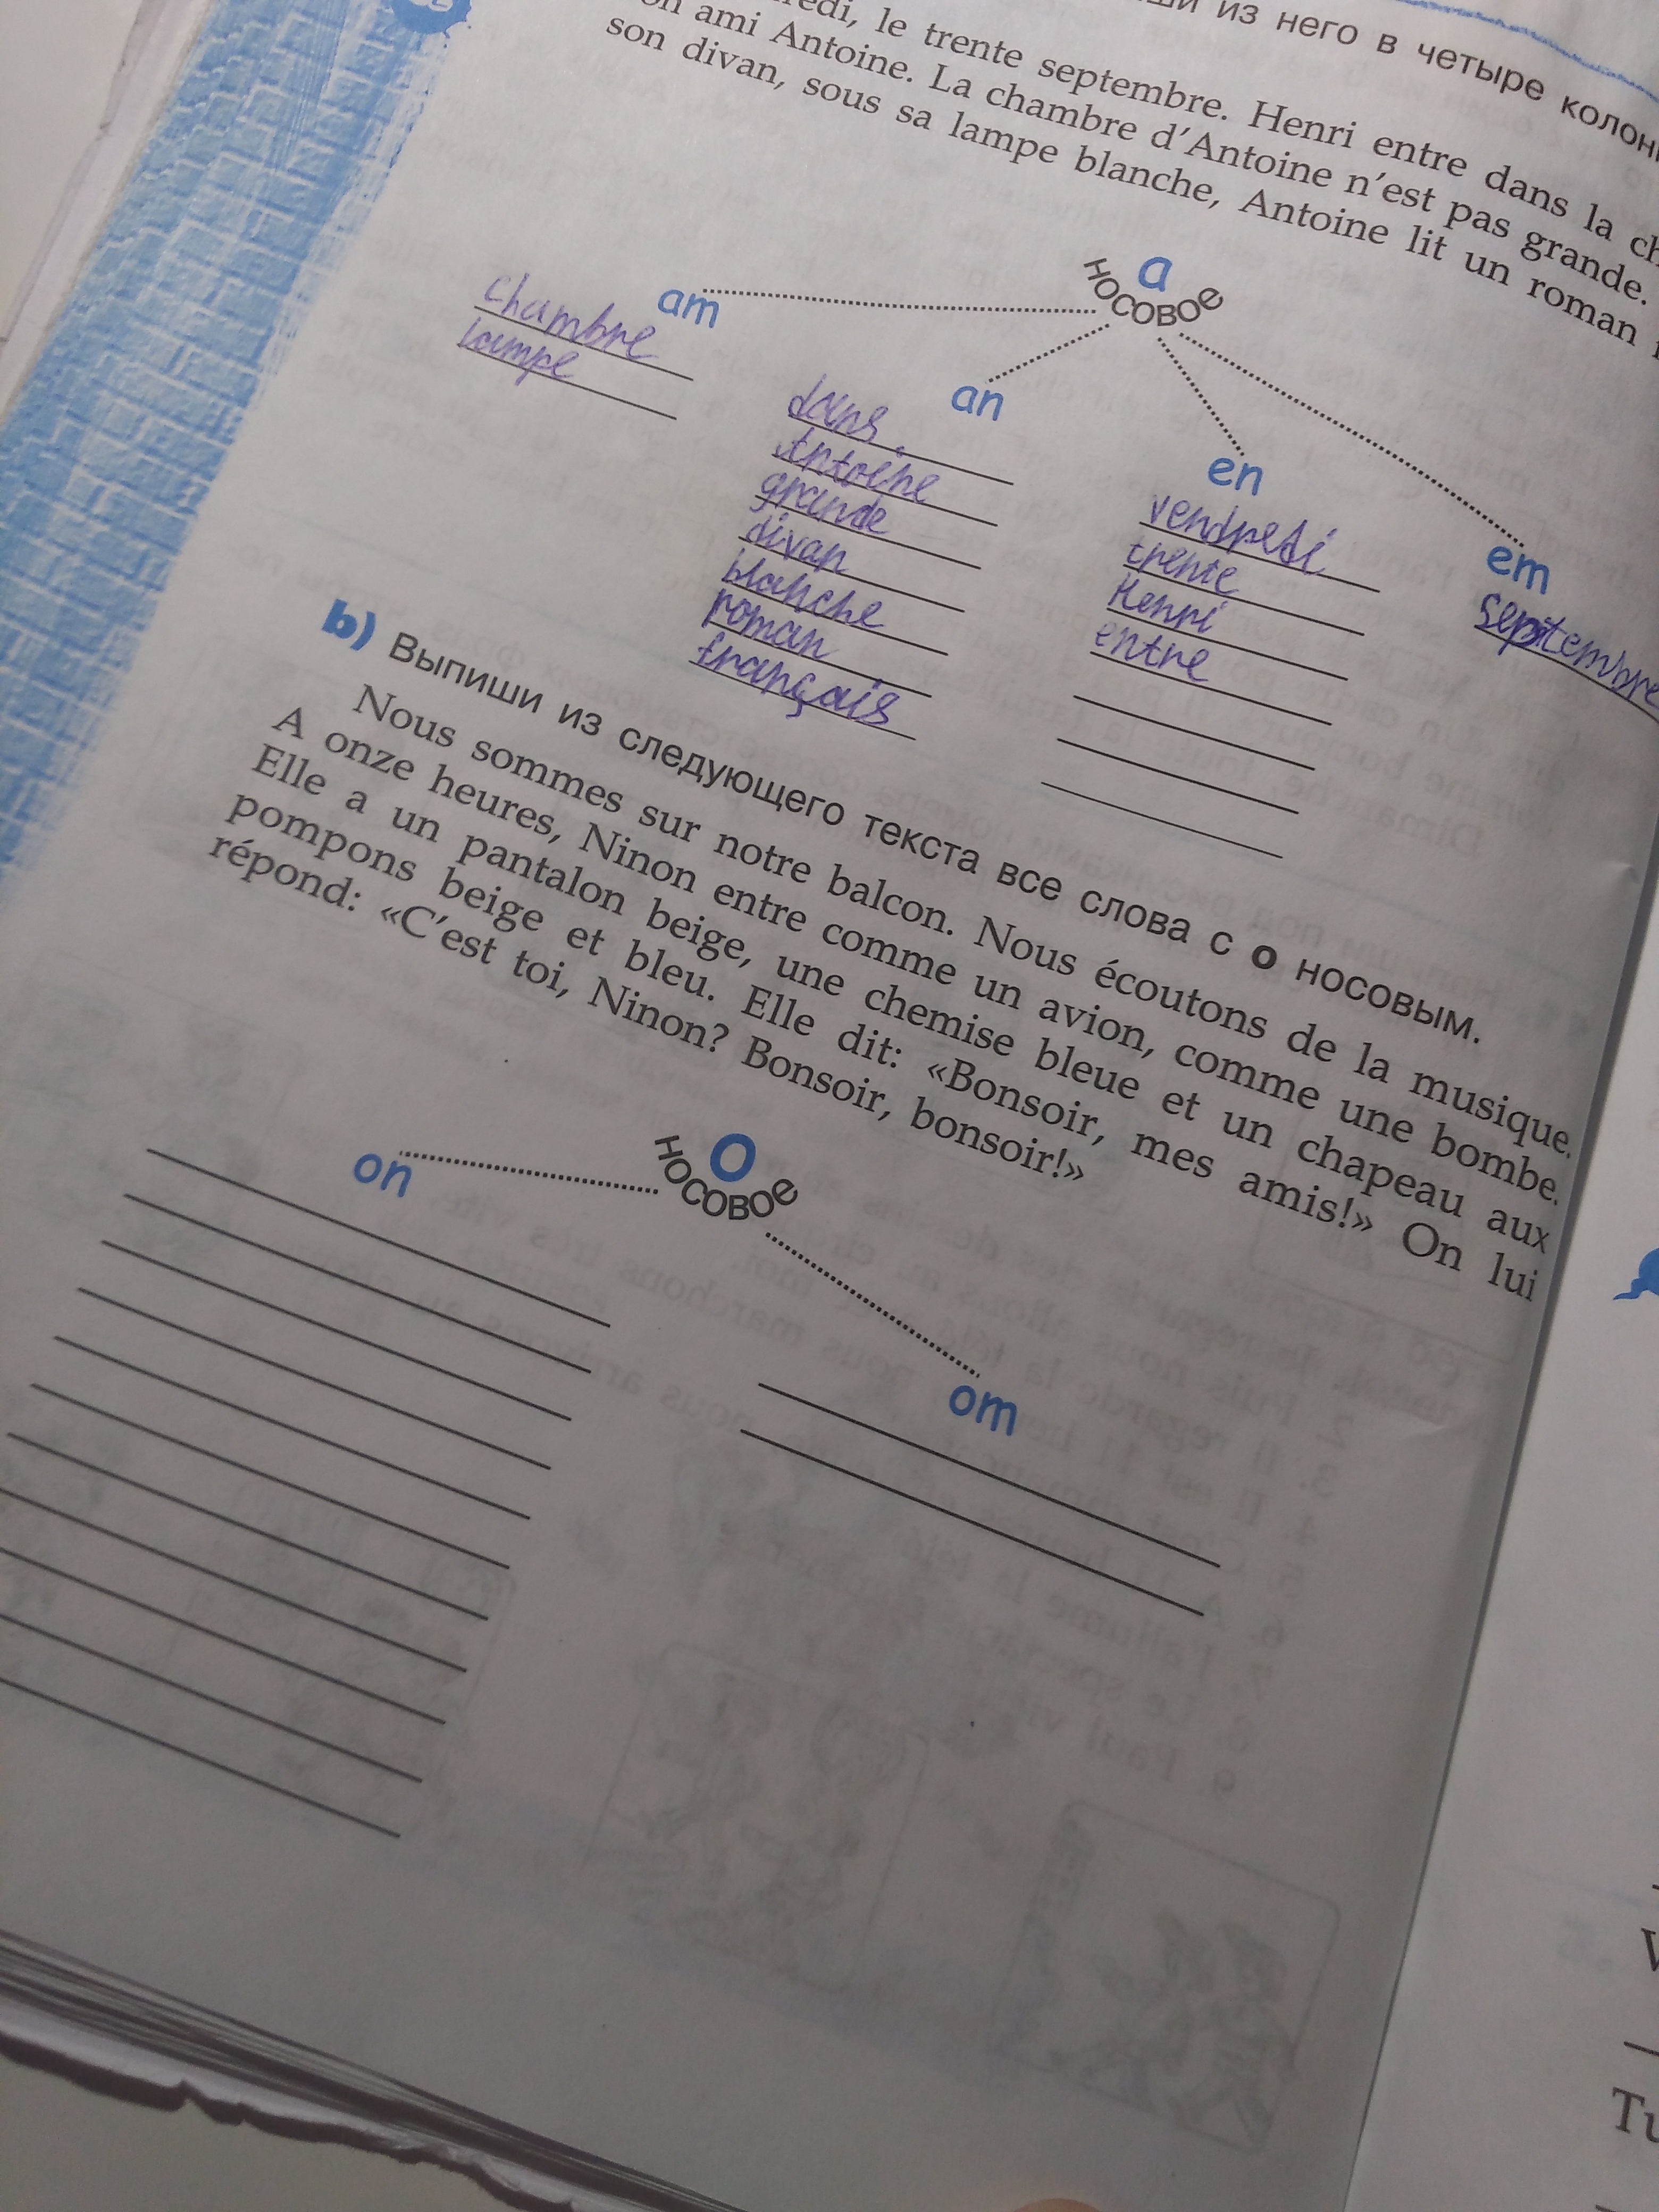 из него в четыре
le trente septembre. Henri entre dans la
ami Antoine. La chambre d'Antoine n'est pas grande.
son divan, sous sa lampe blanche, Antoine lit un roman
а
носовое
am
chambre
lampe
an
dans
Antoine
grande
divan
blanche
roman
français
en
vendredi
trente
Henri
entre
em
septembre
b) Выпиши из следующего текста все слова с о носовым.
Nous sommes sur notre balcon. Nous écoutons de la musique.
A onze heures, Ninon entre comme un avion, comme une bombe.
Elle a un pantalon beige, une chemise bleue et un chapeau aux
pompons beige et bleu. Elle dit: «Bonsoir, mes amis!» On lui
répond: «C'est toi, Ninon? Bonsoir, bonsoir!»
о
носовое
on
om
Tu